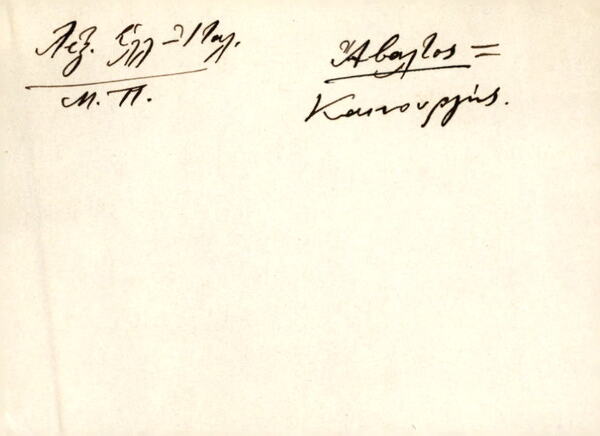 Λεξ. Ἑλλ-Ἰταλ.
Μ. Π.
Ἄβαλτος =
Καινουργής.